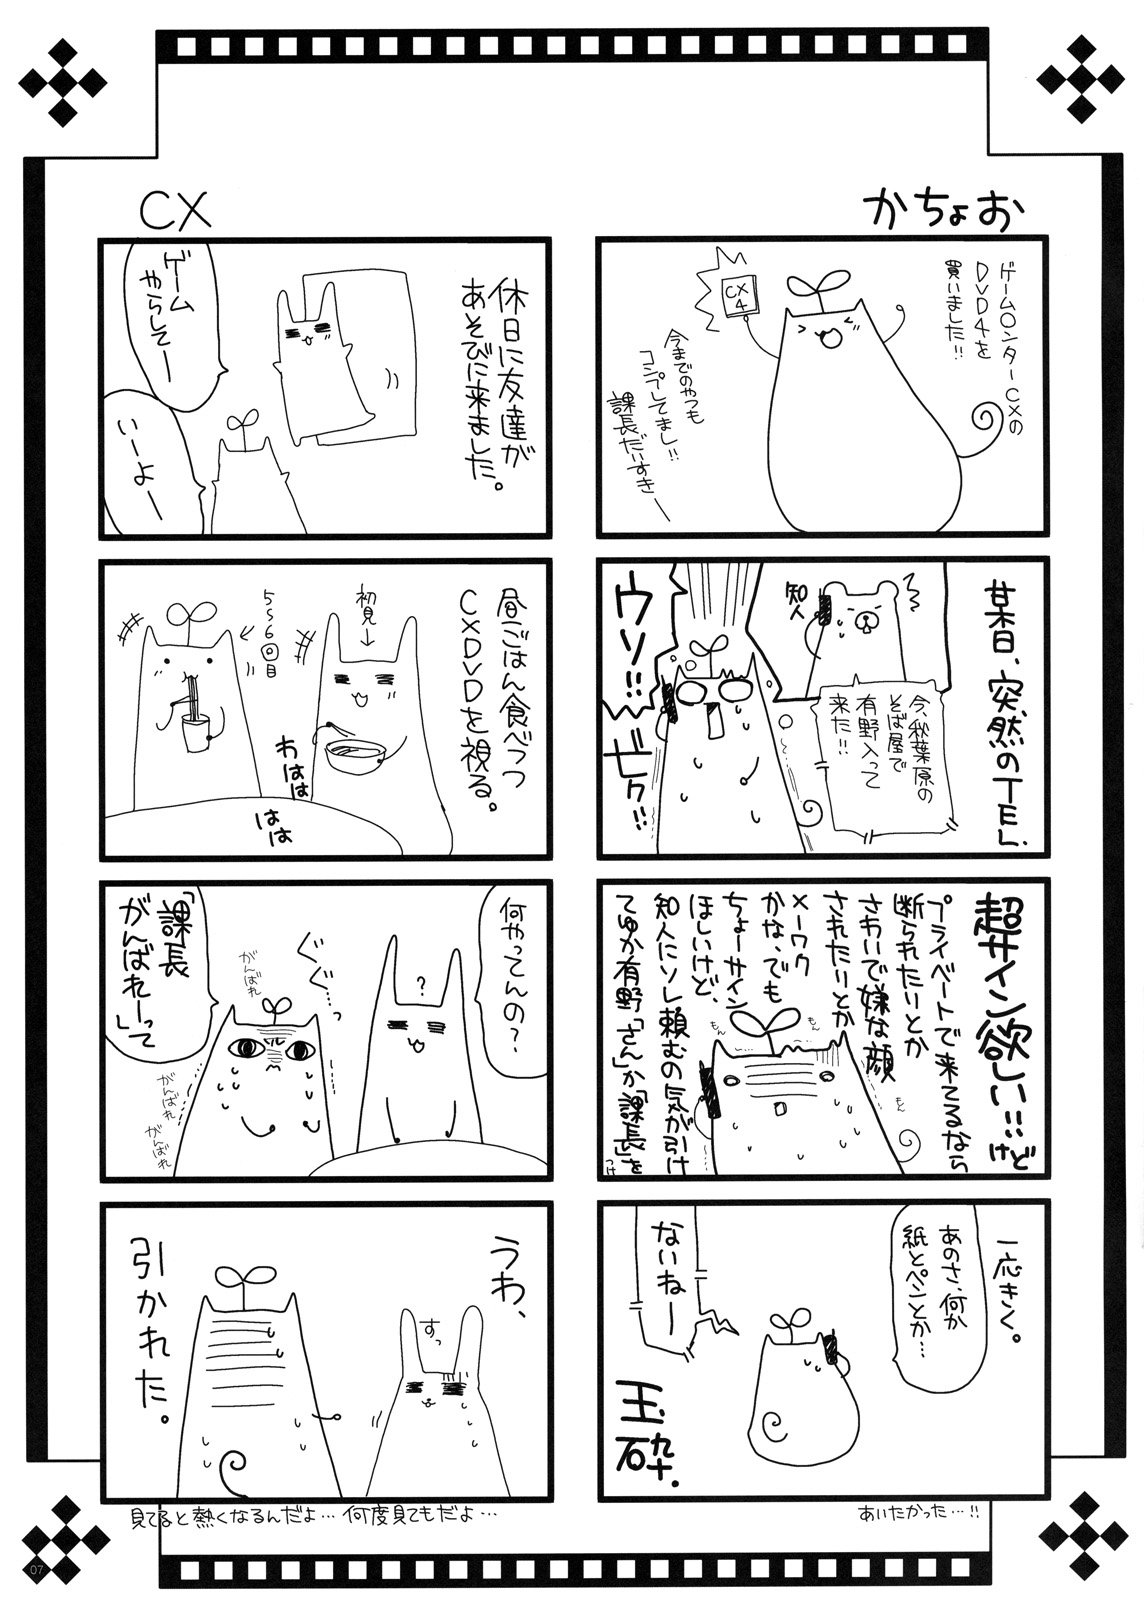 かちょお
ゲーム○ンターCXの
DVD4を
買いました!!
CX
4
今までのやつも
コンプしてまし!!
課長だいすきー
某日、突然のTEL.
知人
今、秋葉原の
そば屋で
有野入って
来た!!
ウソ!!
ビク!!
超サイン欲しい…けど
プライベートで来てるなら
断られたいとか
さわいで嫌な顔
されたいとか
メーワク
かな、でも
ちょーサイン
ほしいけど、
知人にソレ頼むの気が引け
てゆか有野「さん」か「課長」を
つけ
もん
もん
もん
もん
一応きく。
あのさ、何か
紙とペンとか…
ないねー
玉砕.
あいたかった…!!
CX
休日に友達が
あそびに来ました。
ゲーム
やらしてー
いーよー
昼ごはん食べつつ
CXDVDを視る。
初見→
5~6回目
わははは
はは
何やってんの?
?
ぐぐ…っ
がんばれ
「課長
がんばれー」って
がんばれ
がんばれ
うわ、
すっ
引かれた。
見てると熱くなるんだよ…何度見てもだよ…
07